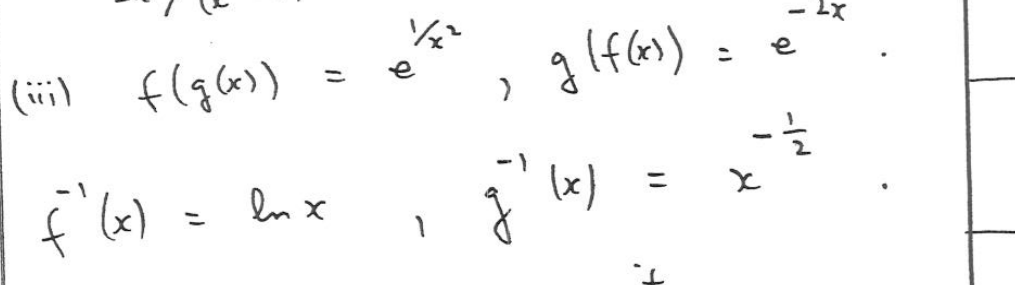 (iii) f(g(x)) = e^{1/x^2} , g(f(x)) = e^{-2x} .
f^{-1}(x) = ln x , g^{-1}(x) = x^{-1/2} .